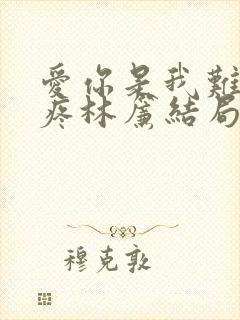 愛你是我難
疼林簾結局
穆克敦